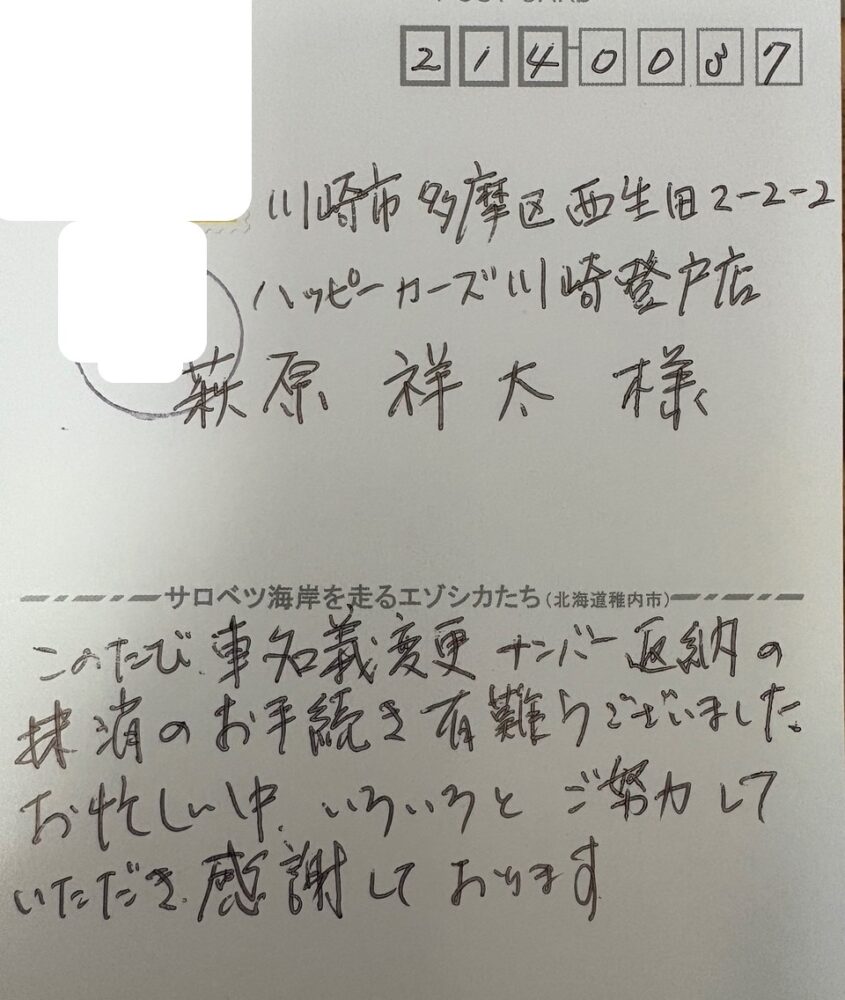 POST CARD
2140037
川崎市多摩区西生田2-2-2
ハッピーカーズ川崎登戸店
萩原 祥太 様
サロベツ海岸を走るエゾシカたち(北海道稚内市)
このたび、車名義変更 ナンバー返納の
抹消のお手続き有難うございました。
お忙しい中、いろいろと ご努力して
いただき、感謝して おります